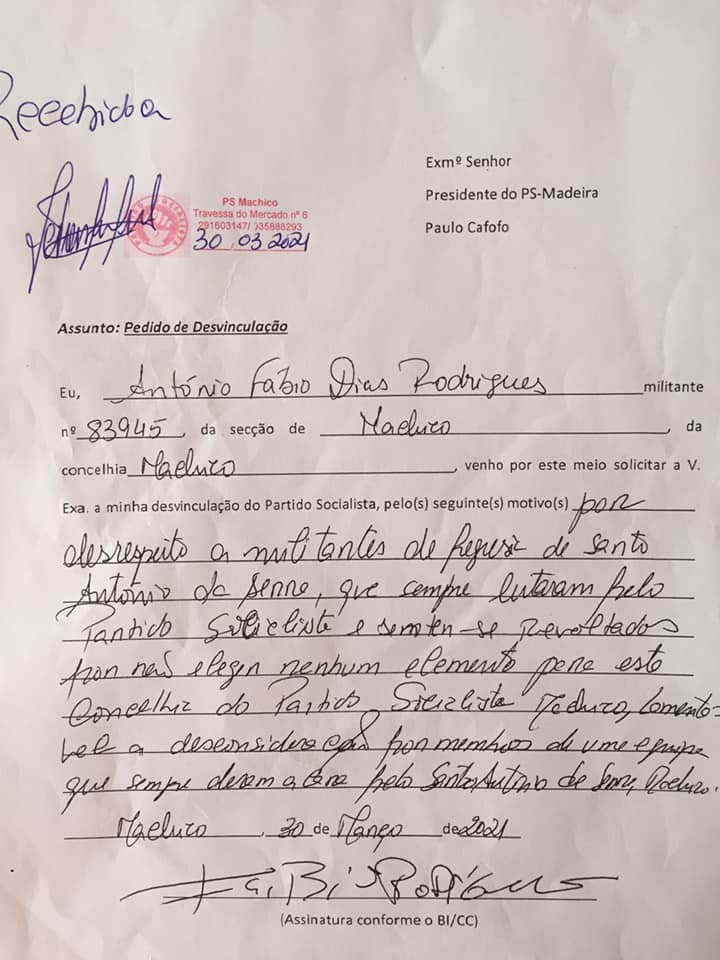 Recebida
Exmº Senhor
Presidente do PS-Madeira
Paulo Cafofo
PS Machico
Travessa do Mercado nº 6
291603147/ 935888293
30 03 2021
Assunto: Pedido de Desvinculação
Eu, António Fábio Dias Rodrigues militante
nº 83945, da secção de Machico, da
concelhia Machico, venho por este meio solicitar a V.
Exa. a minha desvinculação do Partido Socialista, pelo(s) seguinte(s) motivo(s) por
desrespeito a militantes de freguesia de Santo
António da Serra, que sempre lutaram pelo
Partido Socialista e sentem-se revoltados
por não eleger nenhum elemento para esta
Concelhia do Partido Socialista Machico, lamentá-
vel a desconsideração por membros de uma equipa
que sempre deram a cara pelo Santo António da Serra, Machico.
Machico, 30 de Março de 2021
Fábio Rodrigues
(Assinatura conforme o BI/CC)